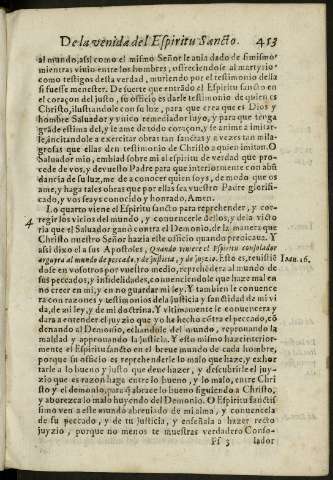 De la venida del Espiritu Sancto. 453
al mundo, assi como el mismo Señor le auia dado de si mismo
mientras viuio entre los hombres, offreciendose al martyrio
como testigos desta verdad, muriendo por el testimonio della
si fuesse menester. De suerte que entrãdo el Espiritu sancto en
el coraçon del justo, su officio es darle testimonio de quien es
Christo, ilustrandole con su luz, para que crea que es Dios y
hombre Saluador y vnico remediador suyo, y para que tenga
grãde estima del, y le ame de todo coraçon, y se anime a imitar
le, inclinandole a exercitar obras tan sanctas y a vezes tan mila
grosas que ellas den testimonio de Christo a quien imitan. O
Saluador mio, embiad sobre mi al espiritu de verdad que pro
cede de vos, y de vuestro Padre para que interiormente con abū
dancia de su luz, me de a conocer quien soys, de modo que os
ame, y haga tales obras que por ellas sea vuestro Padre glorifi
cado, y vos seays conocido y honrado, Amen.
Lo quarto viene el Espiritu sancto para reprehender, y cor
4 regir los vicios del mundo, y conuencerle dellos, y de la victo
ria que el Saluador ganò contra el Demonio, de la manera que
Christo nuestro Señor hazia este officio quando predicaua. Y
assi dixo a sus Apostoles, Quando viniere el Espiritu consolador
arguyra al mundo de peccado, y de justicia, y de juyzio. Esto es, reuistiē Ioã. 16.
dose en vosotros por vuestro medio, reprehēdera al mundo de
sus peccados, y infidelidades, conuenciendole que haze mal en
no creer en mi, y en no guardar mi ley. Y tambien le conuence
ra con razones y testimonios de la justicia y sanctidad de mi vi
da, de mi ley, y de mi doctrina. Y vltimamente le conuencera y
dara a entender el juyzio que yo he hecho cõtra el peccado, cõ
denando al Demonio, echandole del mundo, reprouando la
maldad y approuando la justicia. Y esto mismo haze interior-
mente el Espiritu sancto en el breue mundo de cada hombre,
porque su officio es reprehenderle lo malo que haze, y exhor
tarle a lo bueno y justo que deue hazer, y descubrirle el juy-
zio que es razon haga entre lo bueno, y lo malo, entre Chri
sto y el demonio, para q̃ abrace lo bueno siguiendo a Christo,
y aborezca lo malo huyendo del Demonio. O Espiritu sanctis
simo ven a este mundo abreuiado de mi alma, y conuencela
de su peccado, y de tu justicia, y enseñala a hazer recto
juyzio, porque no menos te muestras verdadero Conso-
Ff 3 lador